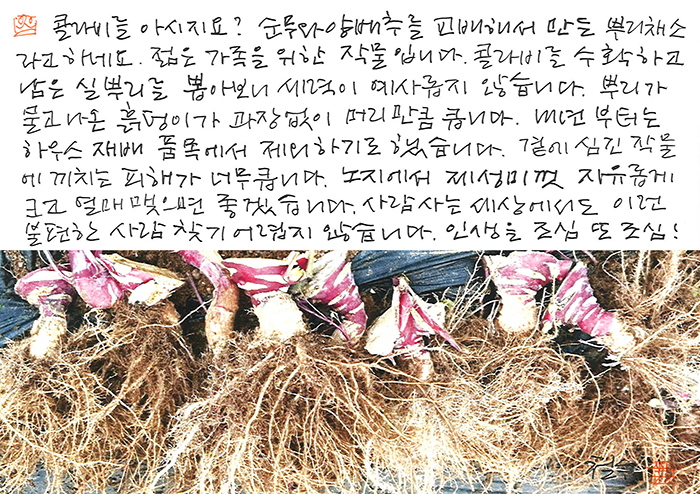 콜라비를 아시지요? 순무와 양배추를 교배해서 만든 뿌리채소
라고 하네요. 젊은 가족을 위한 작물입니다. 콜라비를 수확하고
남은 실뿌리를 뽑아보니 세력이 예사롭지 않습니다. 뿌리가
물고 나온 흙덩이가 과장없이 머리만큼 큽니다. 내년 부터는
하우스 재배 품목에서 제외하기로 했습니다. 곁에 심긴 작물
에 끼치는 피해가 너무 큽니다. 노지에서 제 성미껏 자유롭게
크고 열매 맺으면 좋겠습니다. 사람사는 세상에서도 이런
불편한 사람 찾기 어렵지 않습니다. 인생을 조심 또 조심!